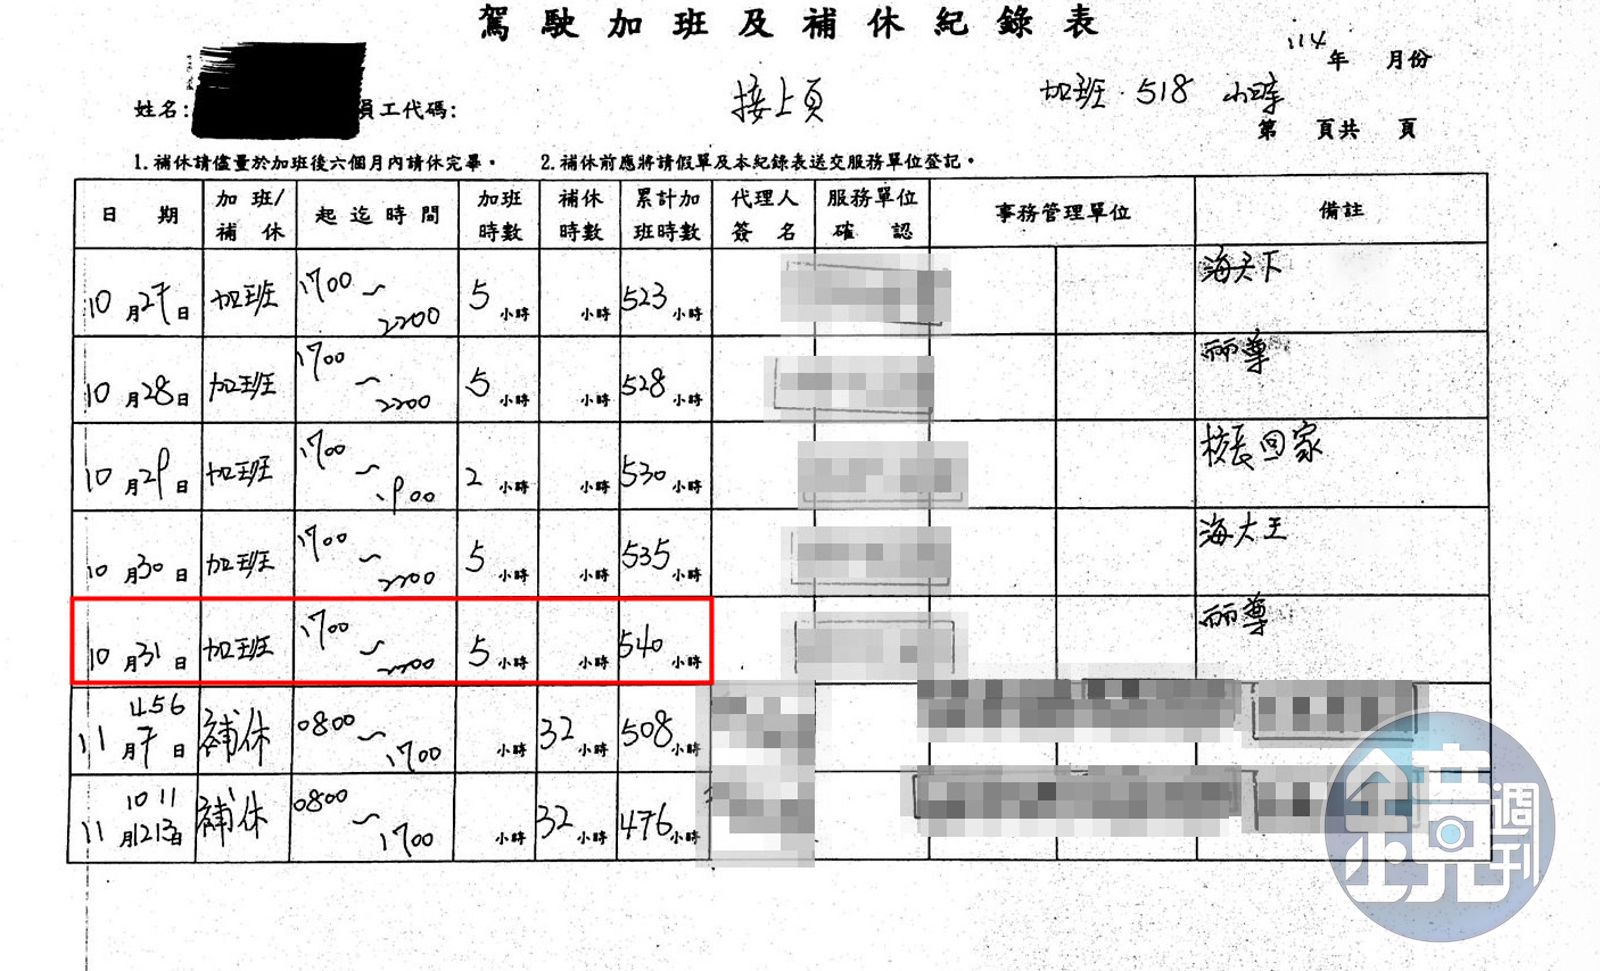 駕駛加班及補休紀錄表
114年 月份
姓名: 員工代碼: 接上頁 加班 518 小時
第 頁共 頁
1.補休請儘量於加班後六個月內請休完畢。 2.補休前應將請假單及本紀錄表送交服務單位登記。
日期 加班/補休 起迄時間 加班時數 補休時數 累計加班時數 代理人簽名 服務單位確認 事務管理單位 備註
10月27日 加班 1700~2200 5小時 小時 523小時 海天下
10月28日 加班 1700~2200 5小時 小時 528小時 麗尊
10月29日 加班 1700~1900 2小時 小時 530小時 校長回家
10月30日 加班 1700~2200 5小時 小時 535小時 海大王
10月31日 加班 1700~2200 5小時 小時 540小時 麗尊
11月4567日 補休 0800~1700 小時 32小時 508小時
11月10111213日 補休 0800~1700 小時 32小時 476小時
鏡週刊